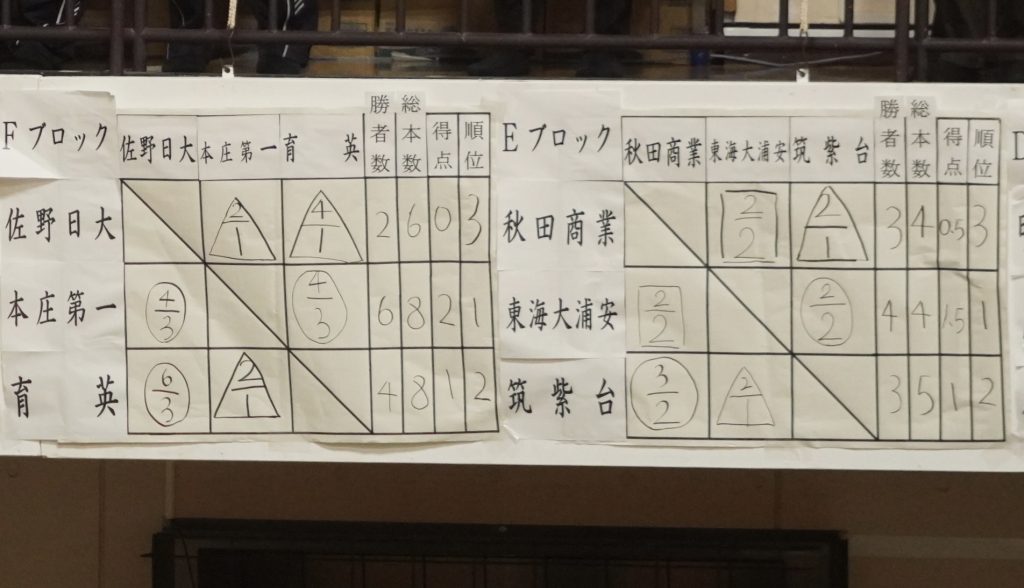 Fブロック 佐野日大 本庄第一 育英 勝者数 総本数 得点 順位
佐野日大 2/1 4/1 2 6 0 3
本庄第一 4/3 4/3 6 8 2 1
育英 6/3 2/1 4 8 1 2
Eブロック 秋田商業 東海大浦安 筑紫台 勝者数 総本数 得点 順位
秋田商業 2/2 2/1 3 4 0.5 3
東海大浦安 2/2 2/2 4 4 1.5 1
筑紫台 3/2 2/1 3 5 1 2